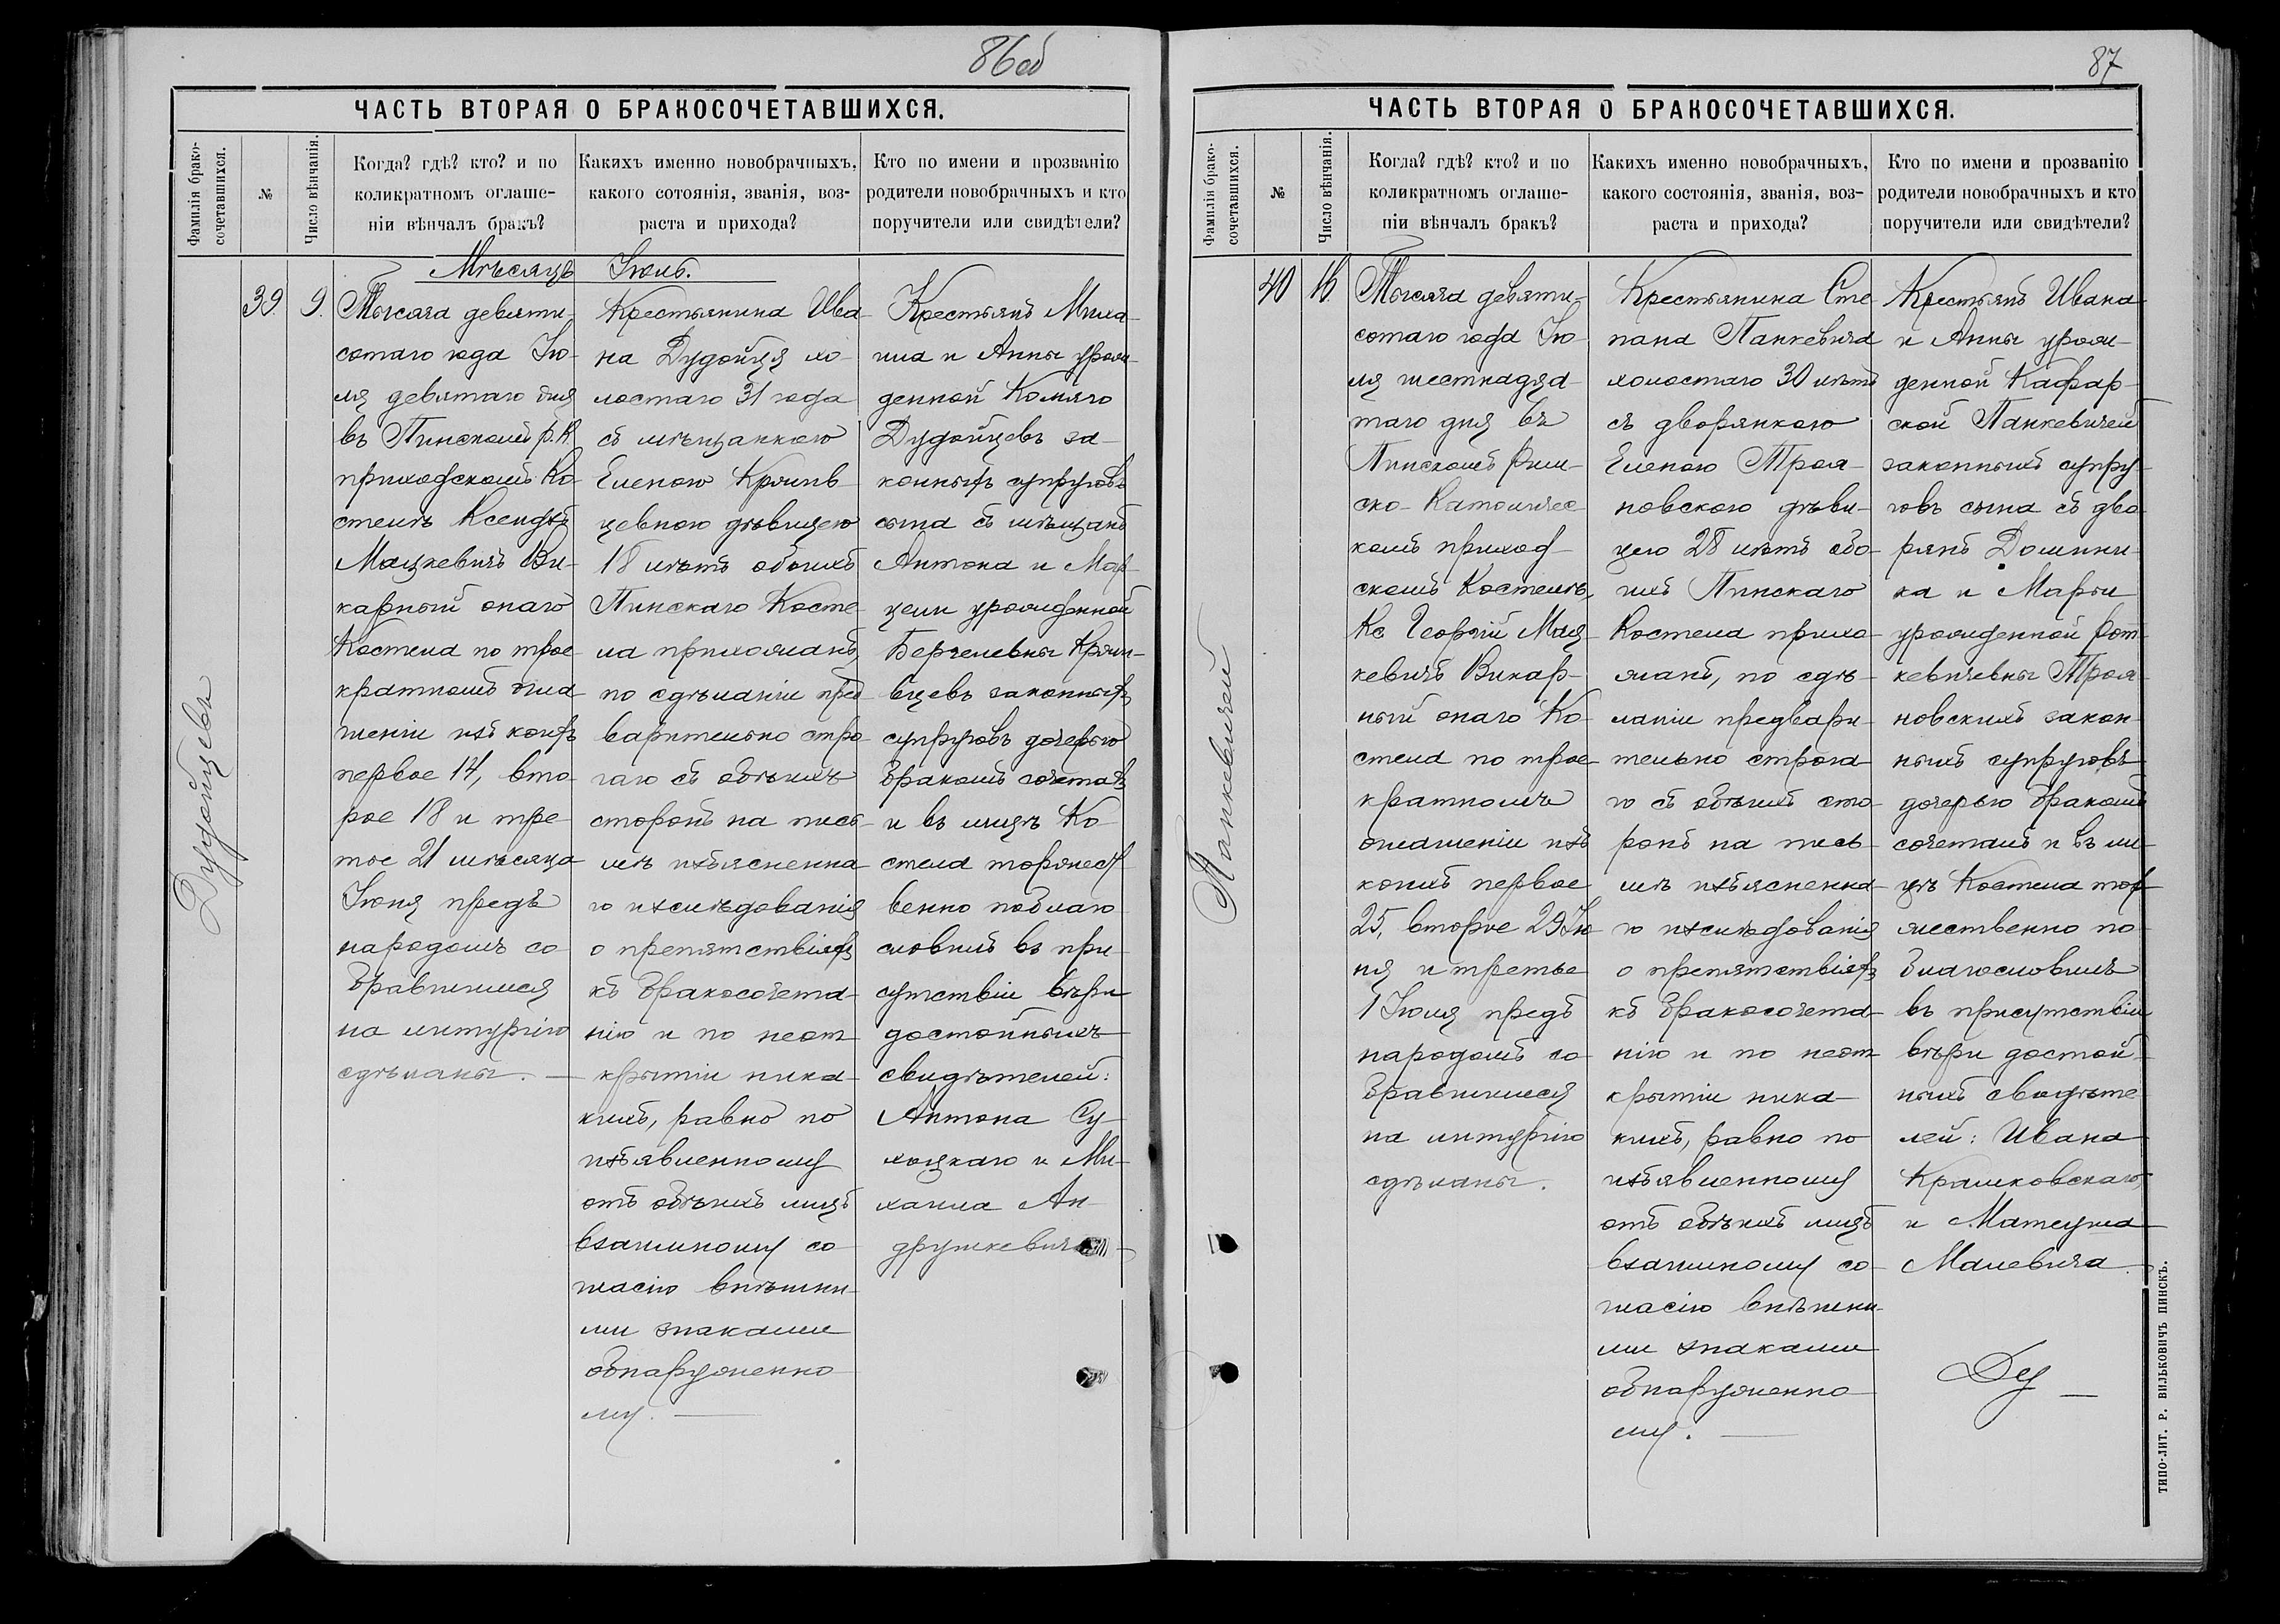 86об
ЧАСТЬ ВТОРАЯ О БРАКОСОЧЕТАВШИХСЯ.
Фамилія брако-
сочетавшихся.
№
Число вѣнчанія.
Когда? гдѣ? кто? и по
коликратномъ оглаше-
ніи вѣнчалъ бракъ?
Какихъ именно новобрачныхъ,
какого сотоянія, званія, воз-
раста и прихода?
Кто по имени и прозванію
родители новобрачныхъ и кто
поручители или свидѣтели?
Мѣсяцъ Іюль.
Дудойцевъ
39
9.
Тысяча девяти-
сотаго года Ію-
ля девятаго дня
въ Пинскомъ Р. К.
приходскомъ Ко-
стелѣ Ксендзъ
Мацкевичъ Ви-
карный онаго
Костела по трое-
кратномъ огла-
шеніи изъ коихъ
первое 14, вто-
рое 18 и тре-
тое 21 мѣсяца
Іюня предъ
народомъ со-
бравшимся
на литургію
сдѣланы.
Крестьянина Ива-
на Дудойця хо-
лостаго 31 года
съ мѣщанкою
Еленою Кроив-
цевною дѣвицею
18 лѣтъ обоихъ
Пинскаго Косте-
ла прихожанъ,
по сдѣланіи пред-
варительно стро-
гаго съ обѣихъ
сторонъ на пись-
мѣ изъясненна-
го изслѣдованія
о препятствіяхъ
къ бракосочета-
нію и по неот-
крытіи ника-
кихъ, равно по
изъявленному
отъ обѣихъ лицъ
взаимному со-
гласію внѣшни-
ми знаками
обнаруженно-
му.
Крестьянъ Миха-
ила и Анны урож-
денной Комяго
Дудойцевъ за-
конныхъ супруговъ
сына съ мѣщанъ
Антона и Мар-
цели урожденной
Бергелевны Кроив-
вцевъ законныхъ
супруговъ дочерью
бракомъ сочеталъ
и въ лицѣ Ко-
стела торжест-
венно поблаго-
словилъ въ при-
сутствіи вѣри
достойныхъ
свидѣтелей:
Антона Су-
хоцкаго и Ми-
хаила Ан-
друшкевича
87
ЧАСТЬ ВТОРАЯ О БРАКОСОЧЕТАВШИХСЯ.
Фамилія брако-
сочетавшихся.
№
Число вѣнчанія.
Когда? гдѣ? кто? и по
коликратномъ оглаше-
ніи вѣнчалъ бракъ?
Какихъ именно новобрачныхъ,
какого состоянія, званія, воз-
раста и прихода?
Кто по имени и прозванію
родители новобрачныхъ и кто
поручители или свидѣтели?
Панкевичей
40
16.
Тысяча девяти-
сотаго года Ію-
ля шестнадца-
таго дня въ
Пинскомъ Рим-
ско-Католичес-
комъ приход-
скомъ Костелѣ,
Кс Георгій Мац-
кевичъ Викар-
ный онаго Ко-
стела по трое-
кратномъ
оглашеніи изъ
коихъ первое
25, второе 29 Ію-
ня и третье
1 Іюля предъ
народомъ со-
бравшимся
на литургію
сдѣланы.
Крестьянина Сте-
пана Панкевича
холостаго 30 лѣтъ
съ дворянкою
Еленою Троя-
новскою дѣви-
цею 28 лѣтъ обо-
ихъ Пинскаго
Костела прихо-
жанъ, по сдѣ-
ланіи предвари-
тельно строга-
го съ обѣихъ сто-
ронъ на пись-
мѣ изъясненна-
го изслѣдованія
о препятствіяхъ
къ бракосочета-
нію и по неот-
крытіи ника-
кихъ, равно по
изъявленному
отъ обѣихъ лицъ
взаимному со-
гласію внѣшни-
ми знаками
обнаруженно-
му.
Крестьянъ Ивана
и Анны урож-
денной Кафар-
ской Панкевичей
законныхъ супру-
говъ сына съ дво-
рянъ Домини-
ка и Марьи
урожденной Рот-
кевичевны Троя-
новскихъ закон-
ныхъ супруговъ
дочерью бракомъ
сочеталъ и въ ли-
цѣ Костела тор-
жественно по-
благословилъ
въ присутствіи
вѣри достой-
ныхъ свидѣте-
лей: Ивана
Крашковскаго,
и Матеуша
Малевича.
ТИПО-ЛИТ. Р. ВИЛЬКОВИЧЪ ПИНСКЪ.